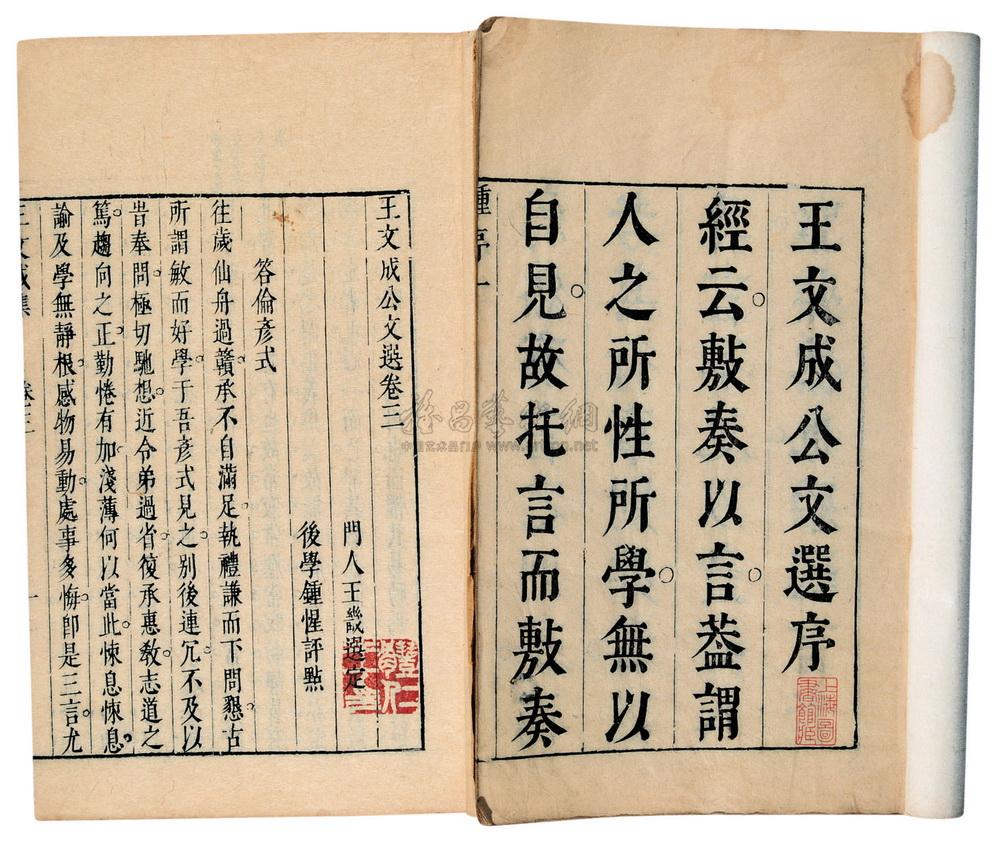 王文成公文選序
經云敷奏以言葢謂
人之所性所學無以
自見故托言而敷奏
鍾序一
王文成公文選卷三
門人王畿選定
後學鍾惺評點
答倫彥式
往歲仙舟過贛承不自滿足執禮謙而下問懇古
所謂敏而好學于吾彥式見之別後連冗不及以
時奉問極切馳想近令弟過省復承惠敎志道之
篤趨向之正勤惓有加淺薄何以當此悚息悚息
諭及學無靜根感物易動處事多悔卽是三言尤
王文成集 卷三 一
上海圖
書館臧